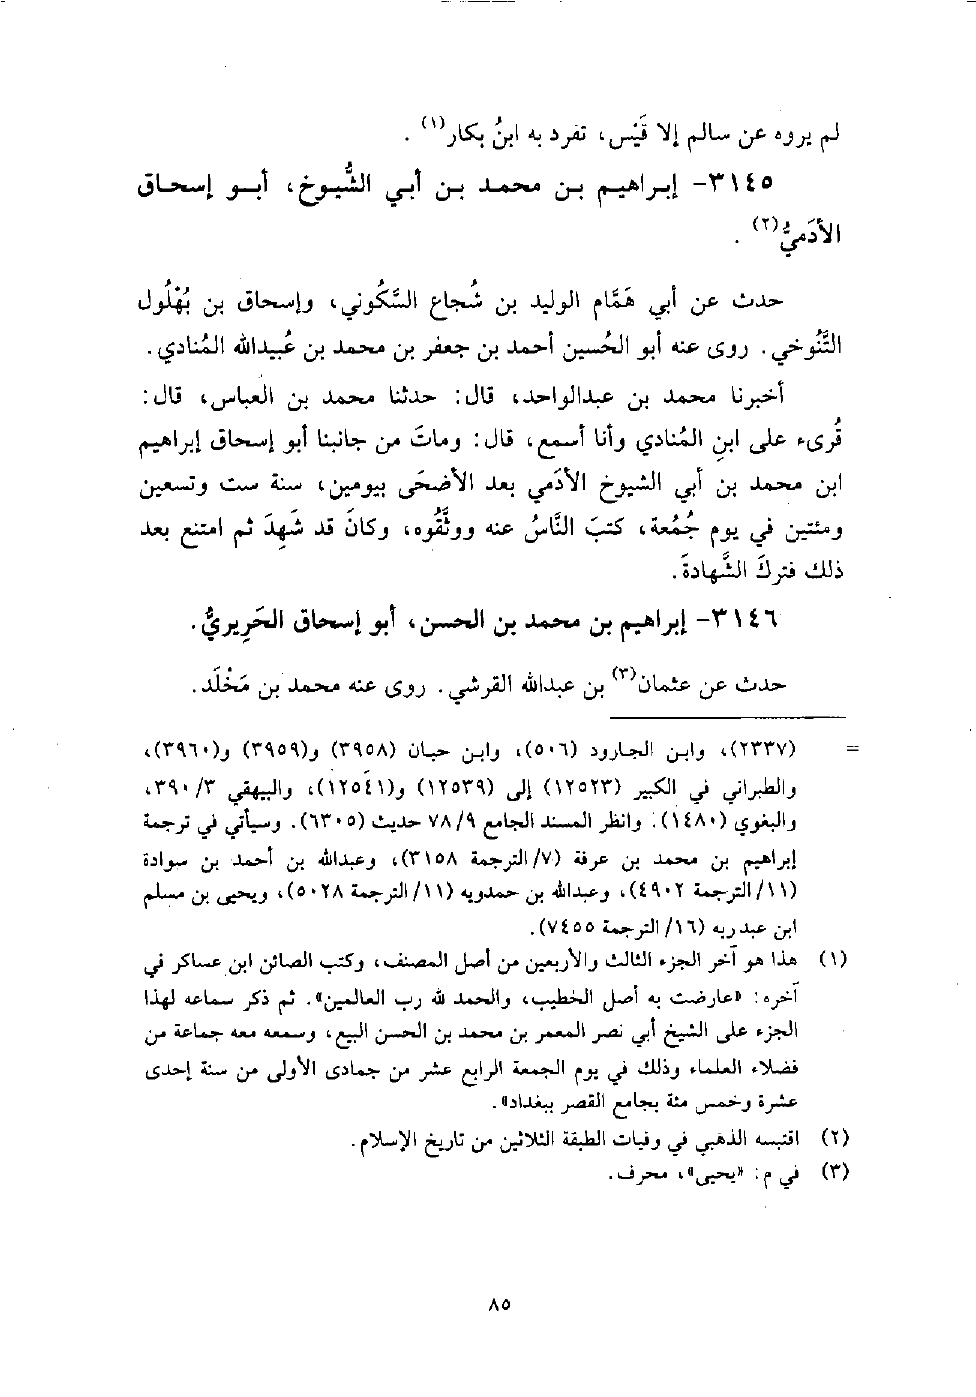 لم يروه عن سالم إلا قَيْس، تفرد به ابنُ بكار(١).
٣١٤٥- إبراهيم بن محمد بن أبي الشُّيوخ، أبو إسحاق
الأدَميُّ(٢).
حدث عن أبي هَمَّام الوليد بن شُجاع السَّكُوني، وإسحاق بن بُهْلُول
التَّنُوخي. روى عنه أبو الحُسين أحمد بن جعفر بن محمد بن عُبيدالله المُنادي.
أخبرنا محمد بن عبدالواحد، قال: حدثنا محمد بن العباس، قال:
قُرىء على ابنِ المُنادي وأنا أسمع، قال: وماتَ من جانبنا أبو إسحاق إبراهيم
ابن محمد بن أبي الشيوخ الأدَمي بعد الأضحَى بيومين، سنة ست وتسعين
ومئتين في يوم جُمُعة، كتبَ النَّاسُ عنه ووثَّقُوه، وكانَ قد شَهِدَ ثم امتنع بعد
ذلك فتركَ الشَّهادةَ.
٣١٤٦- إبراهيم بن محمد بن الحسن، أبو إسحاق الحَرِيريُّ.
حدث عن عثمان(٣) بن عبدالله القرشي. روى عنه محمد بن مَخْلَد.
= (٢٣٣٧)، وابن الجارود (٥٠٦)، وابن حبان (٣٩٥٨) و(٣٩٥٩) و(٣٩٦٠)،
والطبراني في الكبير (١٢٥٢٣) إلى (١٢٥٣٩) و(١٢٥٤١)، والبيهقي ٣٩٠/٣،
والبغوي (١٤٨٠). وانظر المسند الجامع ٧٨/٩ حديث (٦٣٠٥). وسيأتي في ترجمة
إبراهيم بن محمد بن عرفة (٧/ الترجمة ٣١٥٨)، وعبدالله بن أحمد بن سوادة
(١١/ الترجمة ٤٩٠٢)، وعبدالله بن حمدويه (١١/ الترجمة ٥٠٢٨)، ويحيى بن مسلم
ابن عبدربه (١٦/ الترجمة ٧٤٥٥).
(١) هذا هو آخر الجزء الثالث والأربعين من أصل المصنف، وكتب الصائن ابن عساكر في
آخره: «عارضت به أصل الخطيب، والحمد لله رب العالمين». ثم ذكر سماعه لهذا
الجزء على الشيخ أبي نصر المعمر بن محمد بن الحسن البيع، وسمعه معه جماعة من
فضلاء العلماء وذلك في يوم الجمعة الرابع عشر من جمادى الأولى من سنة إحدى
عشرة وخمس مئة بجامع القصر ببغداد».
(٢) اقتبسه الذهبي في وفيات الطبقة الثلاثين من تاريخ الإسلام.
(٣) في م: «يحيى»، محرف.
٨٥